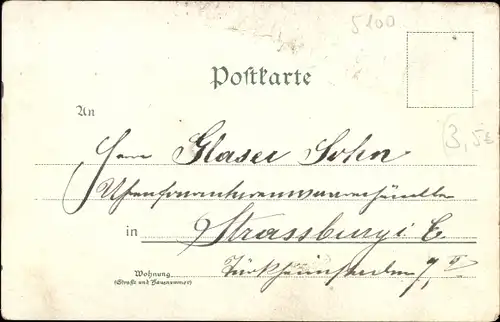 5100
Postkarte
(3,5€
An
Herr Glaser Sohn
in Strassburg i E
Wohnung
(Straße und Hausnummer)
7, II